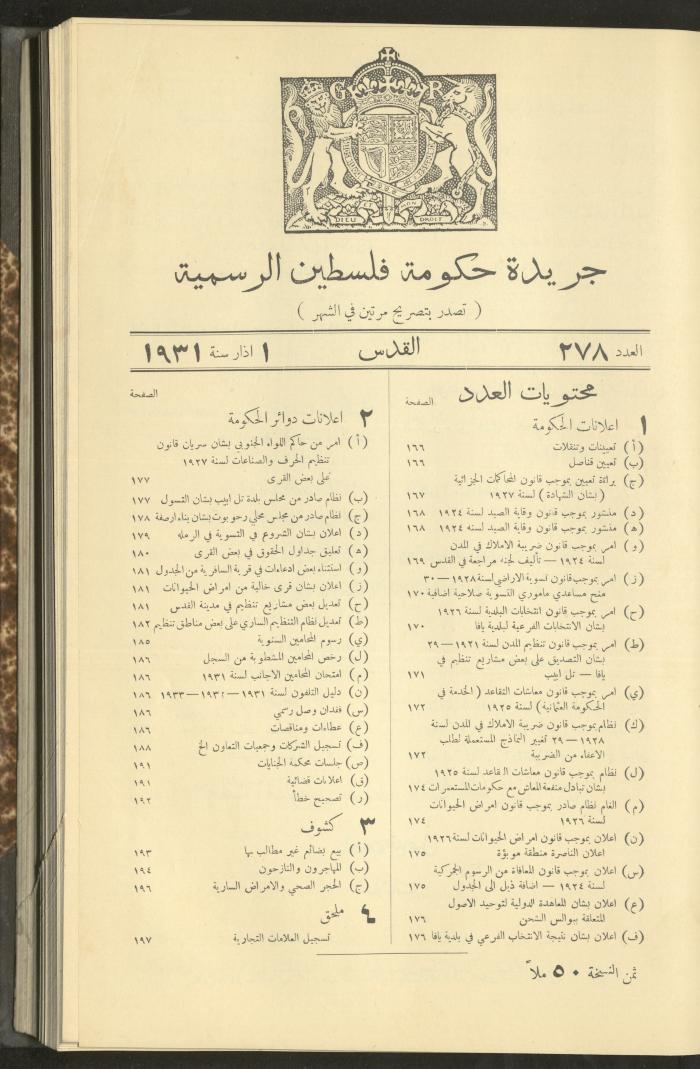 G R
DIEU ET MON DROIT
جريدة حكومة فلسطين الرسمية
( تصدر بتصريح مرتين في الشهر )
العدد ٢٧٨ القدس ١ اذار سنة ١٩٣١
محتويات العدد
الصفحة
١ اعلانات الحكومة
(أ) تعيينات وتنقلات ١٦٦
(ب) تعيين قناصل ١٦٦
(ج) براءة تعيين بموجب قانون المحاكمات الجزائية
( بشان الشهادة ) لسنة ١٩٢٧ ١٦٧
(د) منشور بموجب قانون وقاية الصيد لسنة ١٩٢٤ ١٦٨
(ه) منشور بموجب قانون وقاية الصيد لسنه ١٩٢٤ ١٦٨
(و) امر بموجب قانون ضريبة الاملاك في المدن
لسنة ١٩٢٤ — تأليف لجنة مراجعة في القدس ١٦٩
(ز) امر بموجب قانون تسوية الاراضي لسنة ١٩٢٨ — ٣٠
منح مساعدي ماموري التسوية صلاحية اضافية ١٧٠
(ح) امر بموجب قانون انتخابات البلدية لسنة ١٩٢٦
بشان الانتخابات الفرعية لبلدية يافا ١٧٠
(ط) امر بموجب قانون تنظيم المدن لسنة ١٩٢١ — ٢٩
بشان التصديق على بعض مشاريع تنظيم في
يافا — تل ابيب ١٧١
(ي) امر بموجب قانون معاشات التقاعد ( الخدمة في
الحكومة العثمانية ) لسنة ١٩٢٥ ١٧٢
(ك) نظام بموجب قانون ضريبة الاملاك في المدن لسنة
١٩٢٨ — ٢٩ تغيير النماذج المستعملة لطلب
الاعفاء من الضريبة ١٧٢
(ل) نظام بموجب قانون معاشات التقاعد لسنة ١٩٢٥
بشان تبادل منفعة المعاش مع حكومات المستعمرات ١٧٤
(م) الغاء نظام صادر بموجب قانون امراض الحيوانات
لسنة ١٩٢٦ ١٧٤
(ن) اعلان بموجب قانون امراض الحيوانات لسنة ١٩٢٦
اعلان الناصرة منطقة موبؤة ١٧٥
(س) اعلان بموجب قانون المعافاة من الرسوم الجمركية
لسنة ١٩٢٤ — اضافة ذيل الى الجدول ١٧٥
(ع) اعلان بشان المعاهدة الدولية لتوحيد الاصول
المتعلقة ببوالس الشحن ١٧٦
(ف) اعلان بشان نتيجة الانتخاب الفرعي في بلدية يافا ١٧٦
الصفحة
٢ اعلانات دوائر الحكومة
(أ) امر من حاكم اللواء الجنوبي بشان سريان قانون
تنظيم الحرف والصناعات لسنة ١٩٢٧
على بعض القرى ١٧٧
(ب) نظام صادر من مجلس بلدة تل ابيب بشان التسول ١٧٧
(ج) نظام صادر من مجلس محلي رحوبوت بشان بناء ارصفة ١٧٨
(د) اعلان بشان الشروع في التسوية في الرمله ١٧٩
(ه) تعليق جداول الحقوق في بعض القرى ١٨٠
(و) استثناء بعض ادعاءات في قرية السافرية من الجدول ١٨١
(ز) اعلان بشان قرى خالية من امراض الحيوانات ١٨١
(ح) تعديل بعض مشاريع تنظيم في مدينة القدس ١٨١
(ط) تعديل نظام التنظيم الساري على بعض مناطق تنظيم ١٨٢
(ي) رسوم المحامين السنوية ١٨٥
(ل) رخص المحامين المشطوبة من السجل ١٨٦
(م) امتحان المحامين الاجانب لسنة ١٩٣١ ١٨٦
(ن) دليل التلفون لسنة ١٩٣١ — ١٩٣٢ — ١٩٣٣ ١٨٦
(س) فقدان وصل رسمي ١٨٦
(ع) عطاءات ومناقصات ١٨٦
(ف) تسجيل الشركات وجمعيات التعاون الخ ١٨٨
(ص) جلسات محكمة الجنايات ١٩١
(ق) اعلانات قضائية ١٩١
(ر) تصحيح خطأ ١٩٢
٣ كشوف
(أ) بيع بضائع غير مطالب بها ١٩٣
(ب) المهاجرون والنازحون ١٩٤
(ج) الحجر الصحي والامراض السارية ١٩٦
٤ ملحق
تسجيل العلامات التجارية ١٩٧
ثمن النسخة ٥٠ ملاً